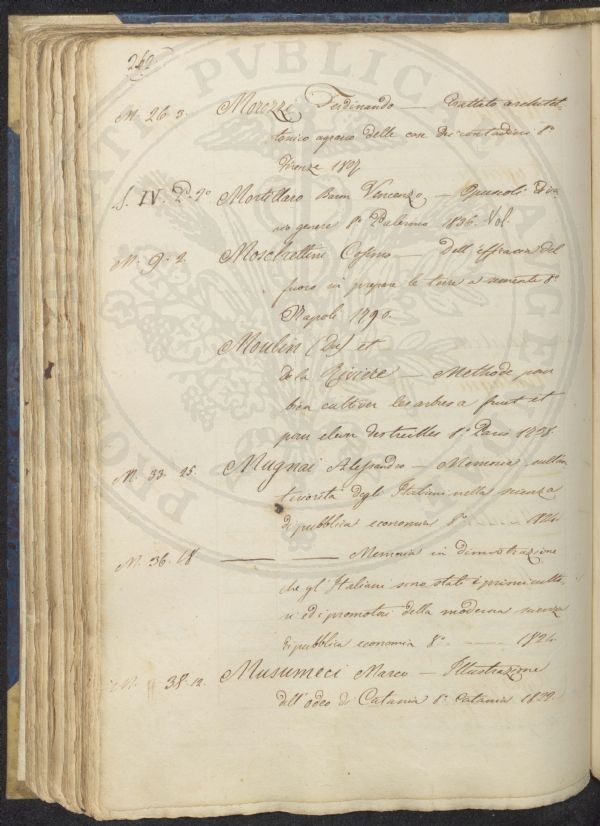 262
M. 26. 3. Morozzi Ferdinando — Trattato architet-
tonico agrario delle case dei contadini 8°
Firenze 1807
S. IV. P. 2° Mortillaro Baron Vincenzo — Opuscoli di va-
rio genere 8° Palermo 1836. Vol.
M. 9. 2. Moschettini Cosimo — Dell'efficacia del
fuoco in prepara le terre a semente 8°
Napoli 1790.
Moulin (Du) et
de la Riviere — Methode pour
bien cultiver les arbres a fruit et
pour elever des treilles 8° Paris
M. 33. 25. Mugnai Alessandro — Memoria sulla
degli Italiani nella scienza
di pubblica economia 8° 1824.
M. 36. 18 — — Memoria in dimostrazione
che gl'Italiani sono stati i primi culto-
ri ed i promotori della moderna scienza
di pubblica economia 8° — 1824.
M. 38. 12. Musumeci Marco — Illustrazione
dell'odeo di Catania 8° Catania 1822.
PRO PUBLICA UTILITATE